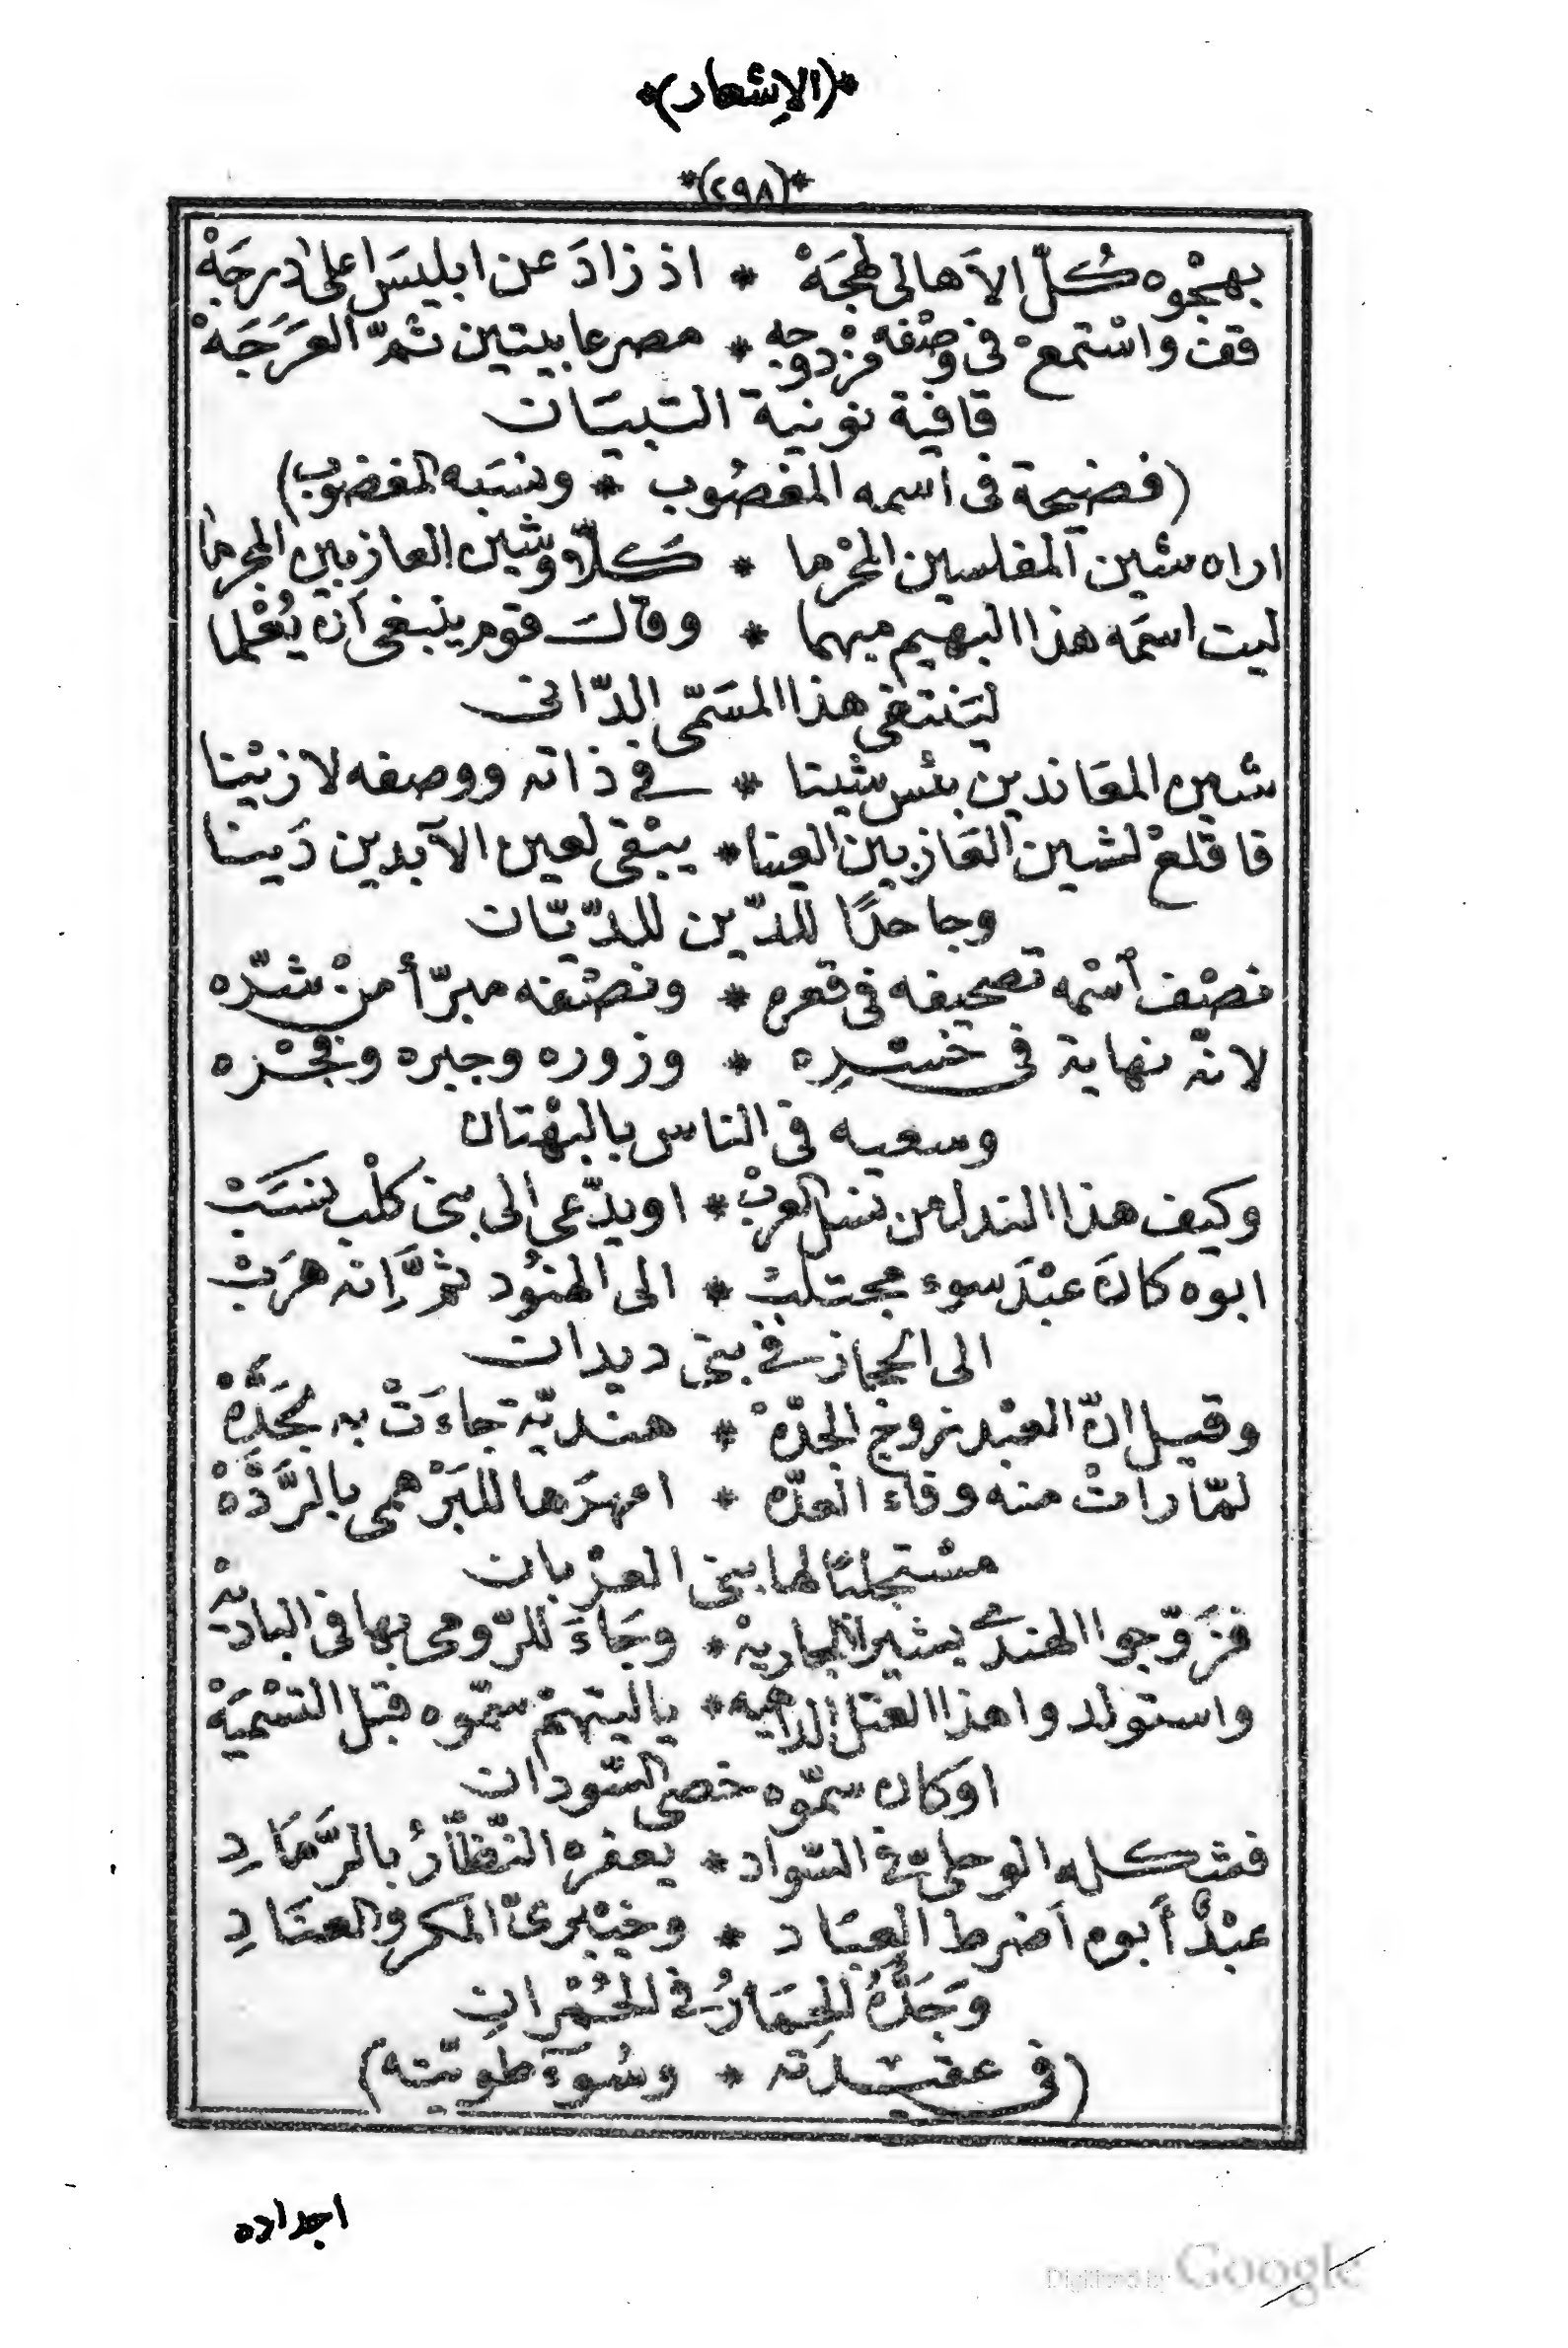 *(الاشعار)*
*(٢٩٨)*
يهجوه كُلّ الاَهالى * اذ زادَ عن ابليسَ اعلىٰ درجَهْ
قف واسْتمعْ فى وصْفه مزْدوجه * مصرعا بيتين ثمّ العَرَجَهْ
قافية نونية التبيَان
(فضيحة فى اسمه المغصُوب * ونسَبه المغضوب)
اراه شين المفلسين المحْرما * كلّا وشين العازمين المجرما
ليت اسمَه هذا البهيم مبهما * وقالَ قوم ينبغى اَن يُعْلما
ليَنتفى هذا المسَمّى الدّانى
شين المعَاندين بئس شينا * فى ذاته ووصفه لا زيْنا
فاقْلعْ لشين العَازبين العينا * يبْقى لعين الآبدين دَينا
وجاحدًا للدّين للديّان
نصْف اسْمه تصحيفه فى قعره * ونصْفه مبرّأ منْ شرّه
لانّه نهاية فى * وزوره وجبره وفجْره
وسعيه فى الناس بالبهْتان
وكيف هذا النذل من نسل العربْ * او يدّعى الى بنى كلْب نسَبْ
ابوه كانَ عبْدَ سوء مجتلبْ * الى الهنُود ثمَّ اِنه هرَبْ
الى الحجاز فى بنى ديدان
وقيل انّ العبْد زوج الجدّهْ * هنْديّة جاءَتْ به بجَدَّهْ
لمّا راتْ منه وفاء العدّه * امهرَها للبَرْهمى بالرَّدَّهْ
لها بنى العزْبان
فزَوّجوا الهندىّ بشير الجاريهْ * وجَاءَ للرّومى بها فى الباديهْ
واستولدوا هذا العتل الداهيه * يا ليتهمْ سمّوه قبل التسْميَهْ
اوكان سمّوه خصى السّودان
فشكله الوحلىّ فى السّواد * يعفره النّظّارُ بالرَّمَادِ
عبْدٌ أَبوه اَضرط العبَاد * وخيْبرىّ المكر والعنَادِ
وَجَدُّهُ الحِمَارُ فى الحُمْرانِ
(فى عقيْدته * وسُوءَ طويّته)
اجداده
Digitized by Google